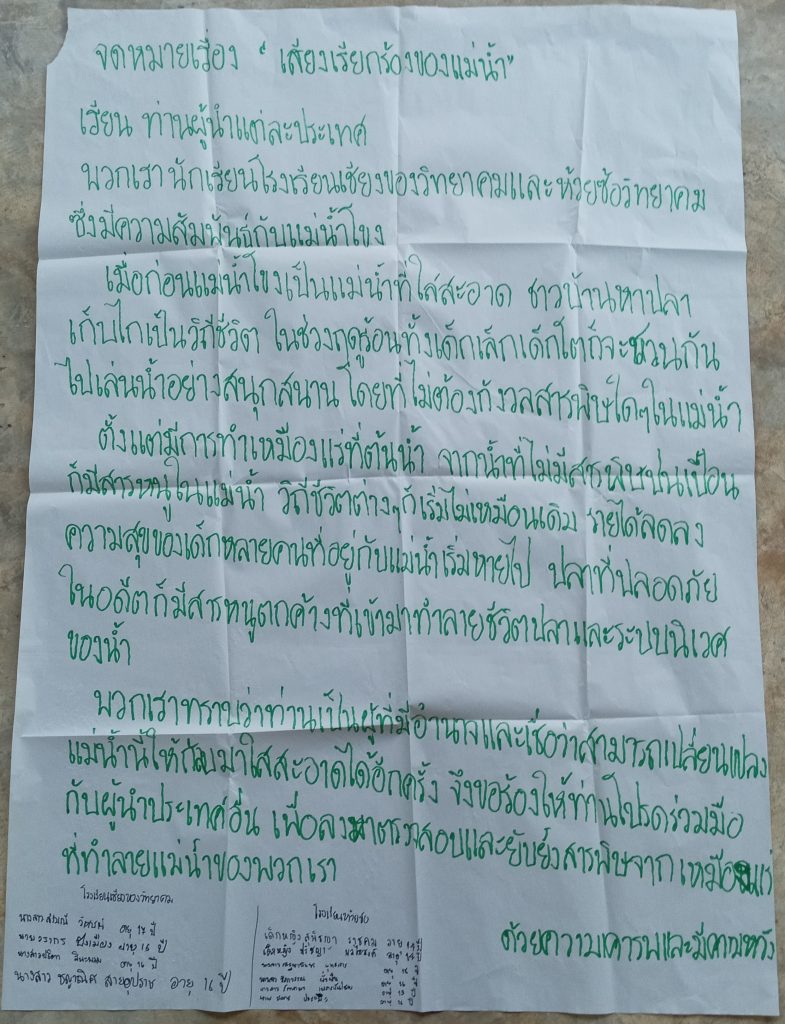 จดหมายเรื่อง "เสียงเรียกร้องของแม่น้ำ"
เรียน ท่านผู้นำแต่ละประเทศ
พวกเรา นักเรียนโรงเรียนเชียงของวิทยาคมและห้วยซ้อวิทยาคม
ซึ่งมีความสัมพันธ์กับแม่น้ำโขง
เมื่อก่อนแม่น้ำโขงเป็นแม่น้ำที่ใสสะอาด ชาวบ้านหาปลา
เก็บไกเป็นวิถีชีวิต ในช่วงฤดูร้อนทั้งเด็กเล็กเด็กโตก็จะชวนกัน
ไปเล่นน้ำอย่างสนุกสนาน โดยที่ไม่ต้องกังวลสารพิษใดๆในแม่น้ำ
ตั้งแต่มีการทำเหมืองแร่ที่ต้นน้ำ จากน้ำที่ไม่มีสารพิษปนเปื้อน
ก็มีสารหนูในแม่น้ำ วิถีชีวิตต่างๆก็เริ่มไม่เหมือนเดิม รายได้ลดลง
ความสุขของเด็กหลายคนที่อยู่กับแม่น้ำเริ่มหายไป ปลาที่ปลอดภัย
ในอดีตก็มีสารหนูตกค้างที่เข้ามาทำลายชีวิตปลาและระบบนิเวศ
ของน้ำ
พวกเราทราบว่าท่านเป็นผู้ที่มีอำนาจและเชื่อว่าสามารถเปลี่ยนแปลง
แม่น้ำนี้ให้กลับมาใสสะอาดได้อีกครั้ง จึงขอร้องให้ท่านโปรดร่วมมือ
กับผู้นำประเทศอื่น เพื่อลงมาตรวจสอบและยับยั้งสารพิษจากเหมืองแร่
ที่ทำลายแม่น้ำของพวกเรา
ด้วยความเคารพและมีความหวัง
โรงเรียนเชียงของวิทยาคม
นางสาว อายุ 17 ปี
นาย วรากร อายุ 16 ปี
นางสาว อายุ 16 ปี
นางสาว ชญาณิศ สายอุปราช อายุ 16 ปี
โรงเรียนห้วยซ้อ
เด็กหญิง อายุ 14 ปี
เด็กหญิง อายุ